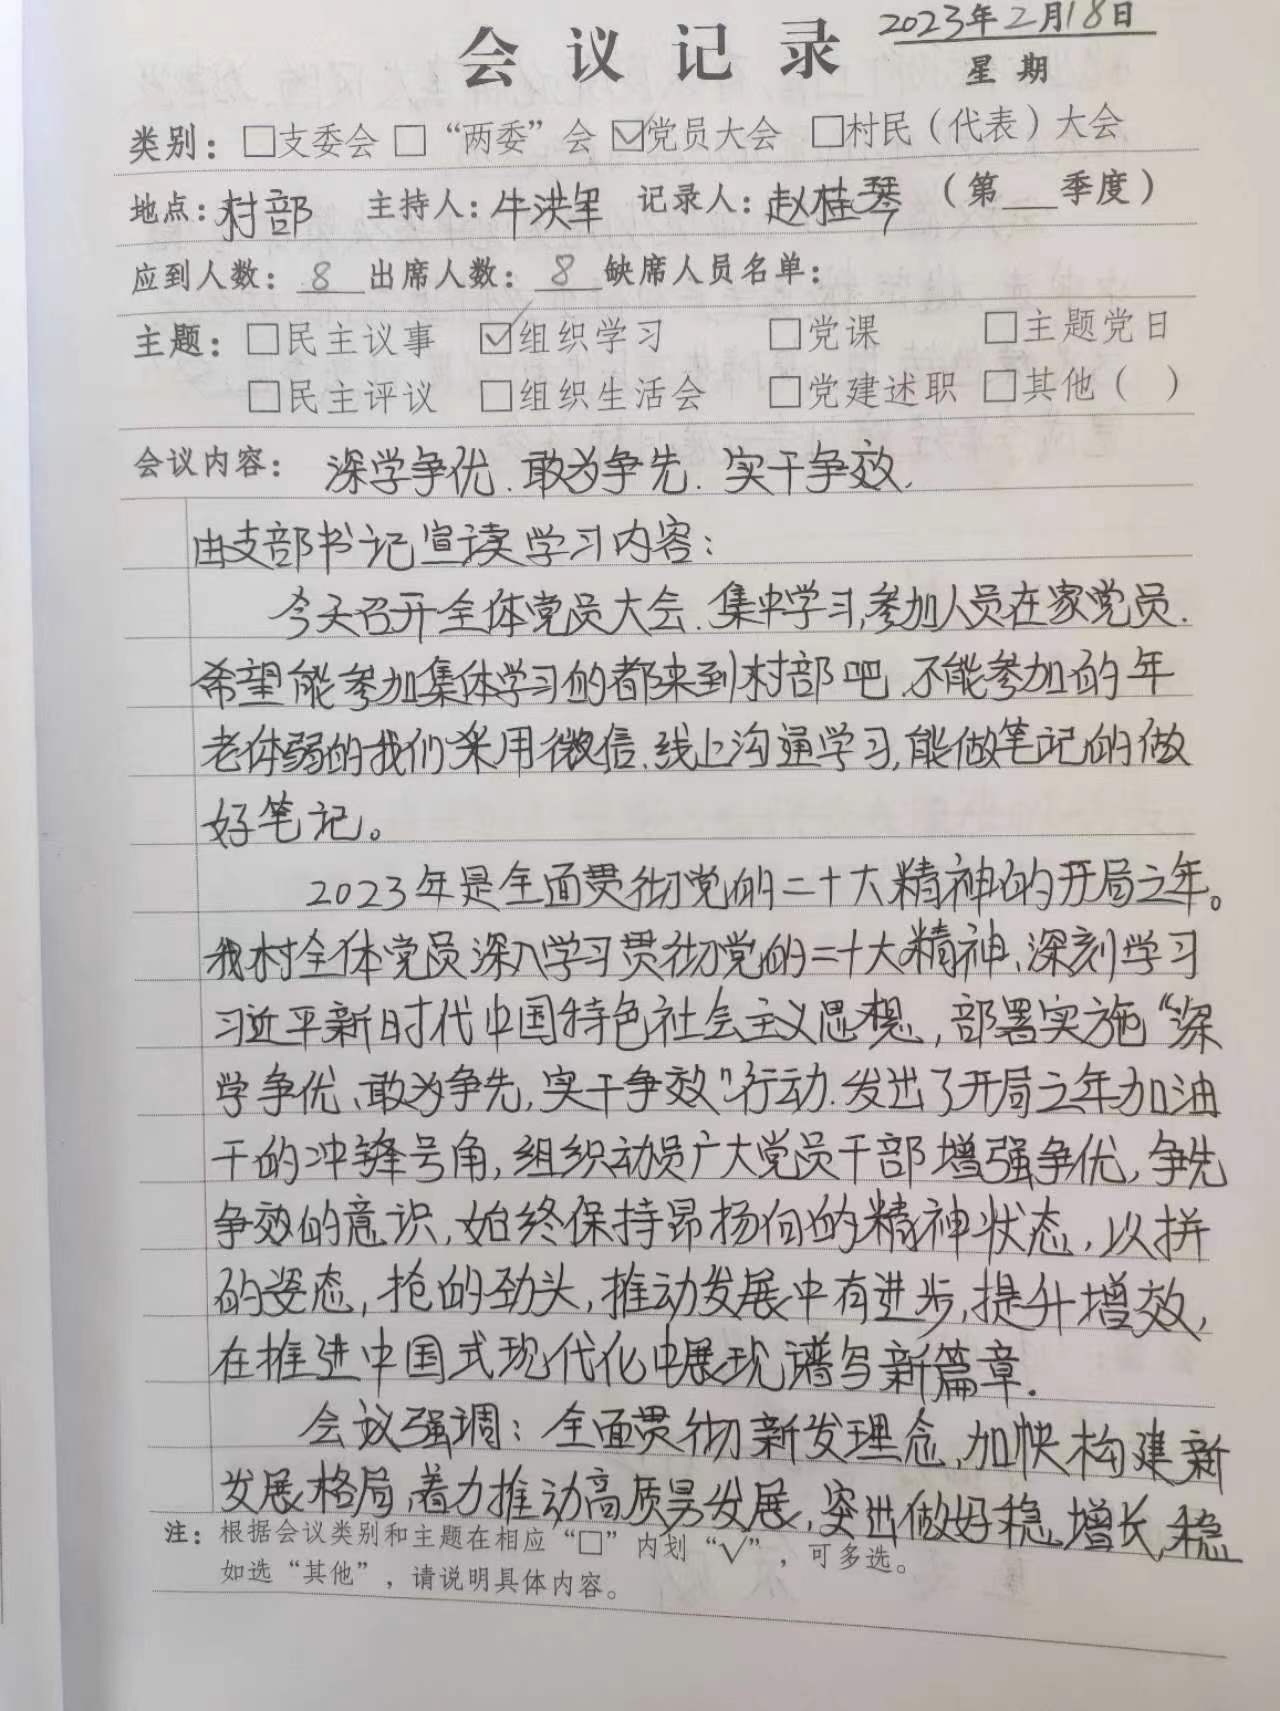 会议记录 2023年2月18日
星期
类别：□支委会 □“两委”会 ☑党员大会 □村民（代表）大会
地点：村部 主持人：牛洪军 记录人：赵桂琴 （第___季度）
应到人数：8 出席人数：8 缺席人员名单：
主题：□民主议事 ☑组织学习 □党课 □主题党日
□民主评议 □组织生活会 □党建述职 □其他（ ）
会议内容： 深学争优、敢为争先、实干争效，
由支部书记宣读学习内容：
今天召开全体党员大会、集中学习,参加人员在家党员.
希望能参加集体学习的都来到村部吧、不能参加的年
老体弱的我们采用微信、线上沟通学习,能做笔记的做
好笔记。
2023年是全面贯彻党的二十大精神的开局之年。
我村全体党员深入学习贯彻党的二十大精神、深刻学习
习近平新时代中国特色社会主义思想，部署实施“深
学争优、敢为争先,实干争效”行动.发出了开局之年加油
干的冲锋号角,组织动员广大党员干部增强争优,争先
争效的意识,始终保持昂扬向的精神状态，以拼
的姿态,抢的劲头,推动发展中有进步,提升增效,
在推进中国式现代化中展现谱写新篇章.
会议强调：全面贯彻新发理念、加快构建新
发展格局,着力推动高质另发展,突出做好稳增长,稳
注：根据会议类别和主题在相应“□”内划“√”，可多选。
如选“其他”，请说明具体内容。